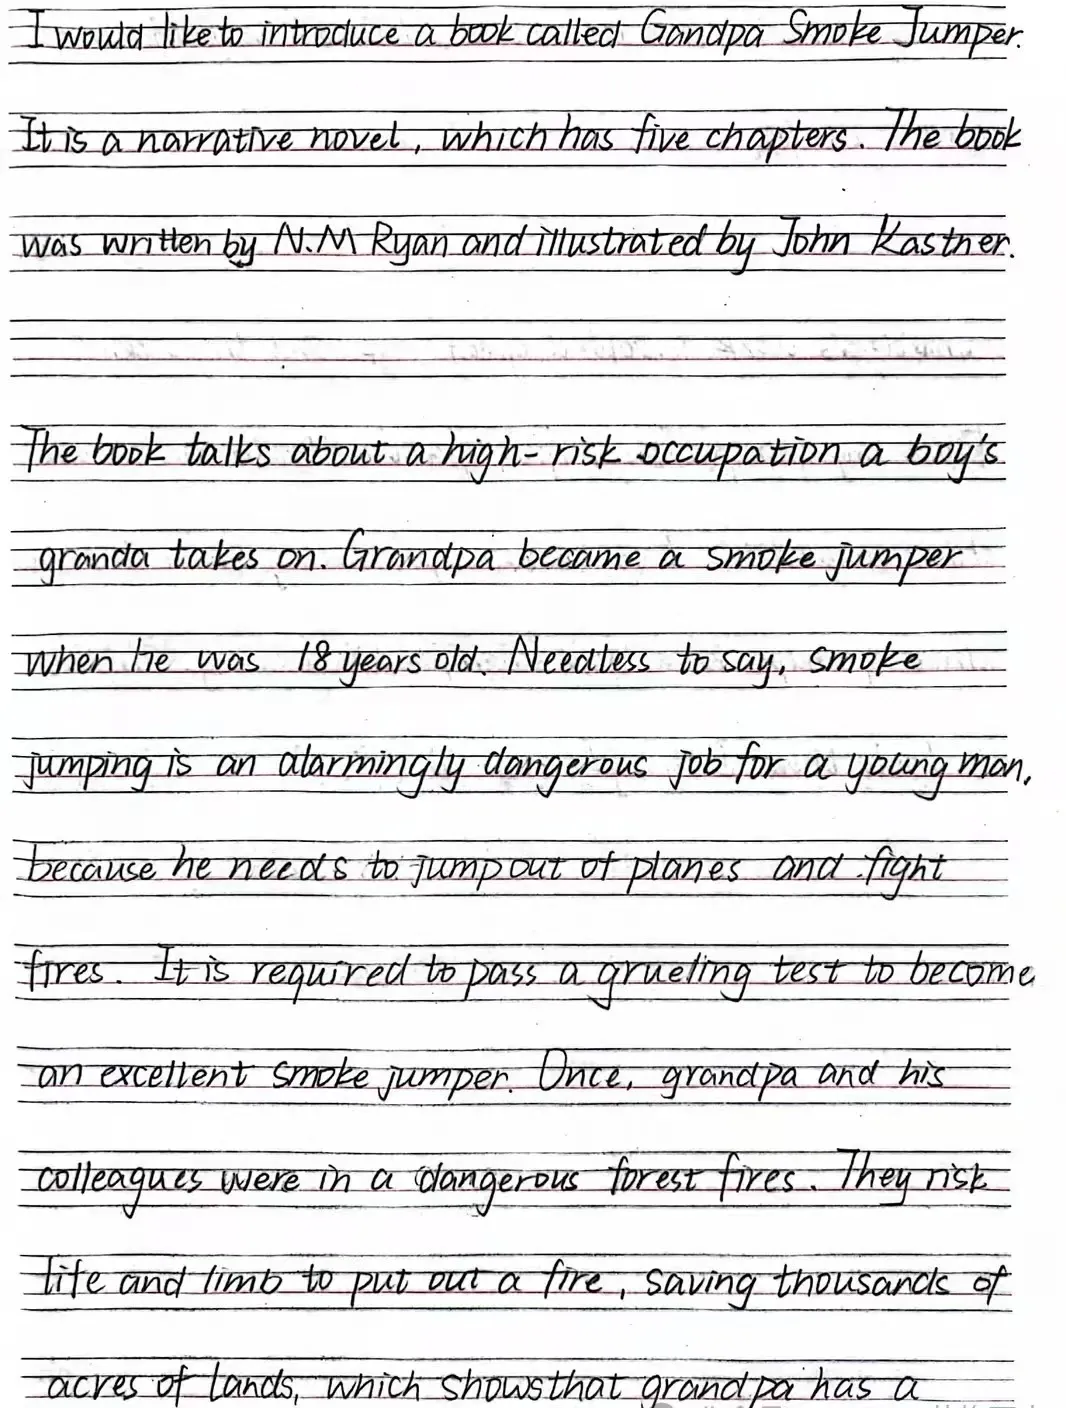 I would like to introduce a book called Gandpa Smoke Jumper.
It is a narrative novel, which has five chapters. The book
was written by N.M Ryan and illustrated by John Kastner.
The book talks about a high-risk occupation a boy's
granda takes on. Grandpa became a smoke jumper
when he was 18 years old. Needless to say, smoke
jumping is an alarmingly dangerous job for a young man,
because he needs to jump out of planes and fight
fires. It is required to pass a grueling test to become
an excellent smoke jumper. Once, grandpa and his
colleagues were in a dangerous forest fires. They risk
life and limb to put out a fire, saving thousands of
acres of lands, which shows that grandpa has a